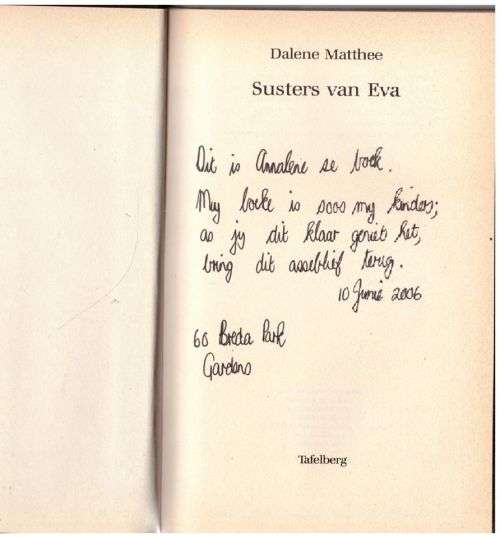 Dalene Matthee
Susters van Eva
Dit is Annalene se boek.
My boeke is soos my kinders;
as jy dit klaar geniet het,
bring dit asseblief terug.
10 Junie 2006
60 Breda Park
Gardens
Tafelberg